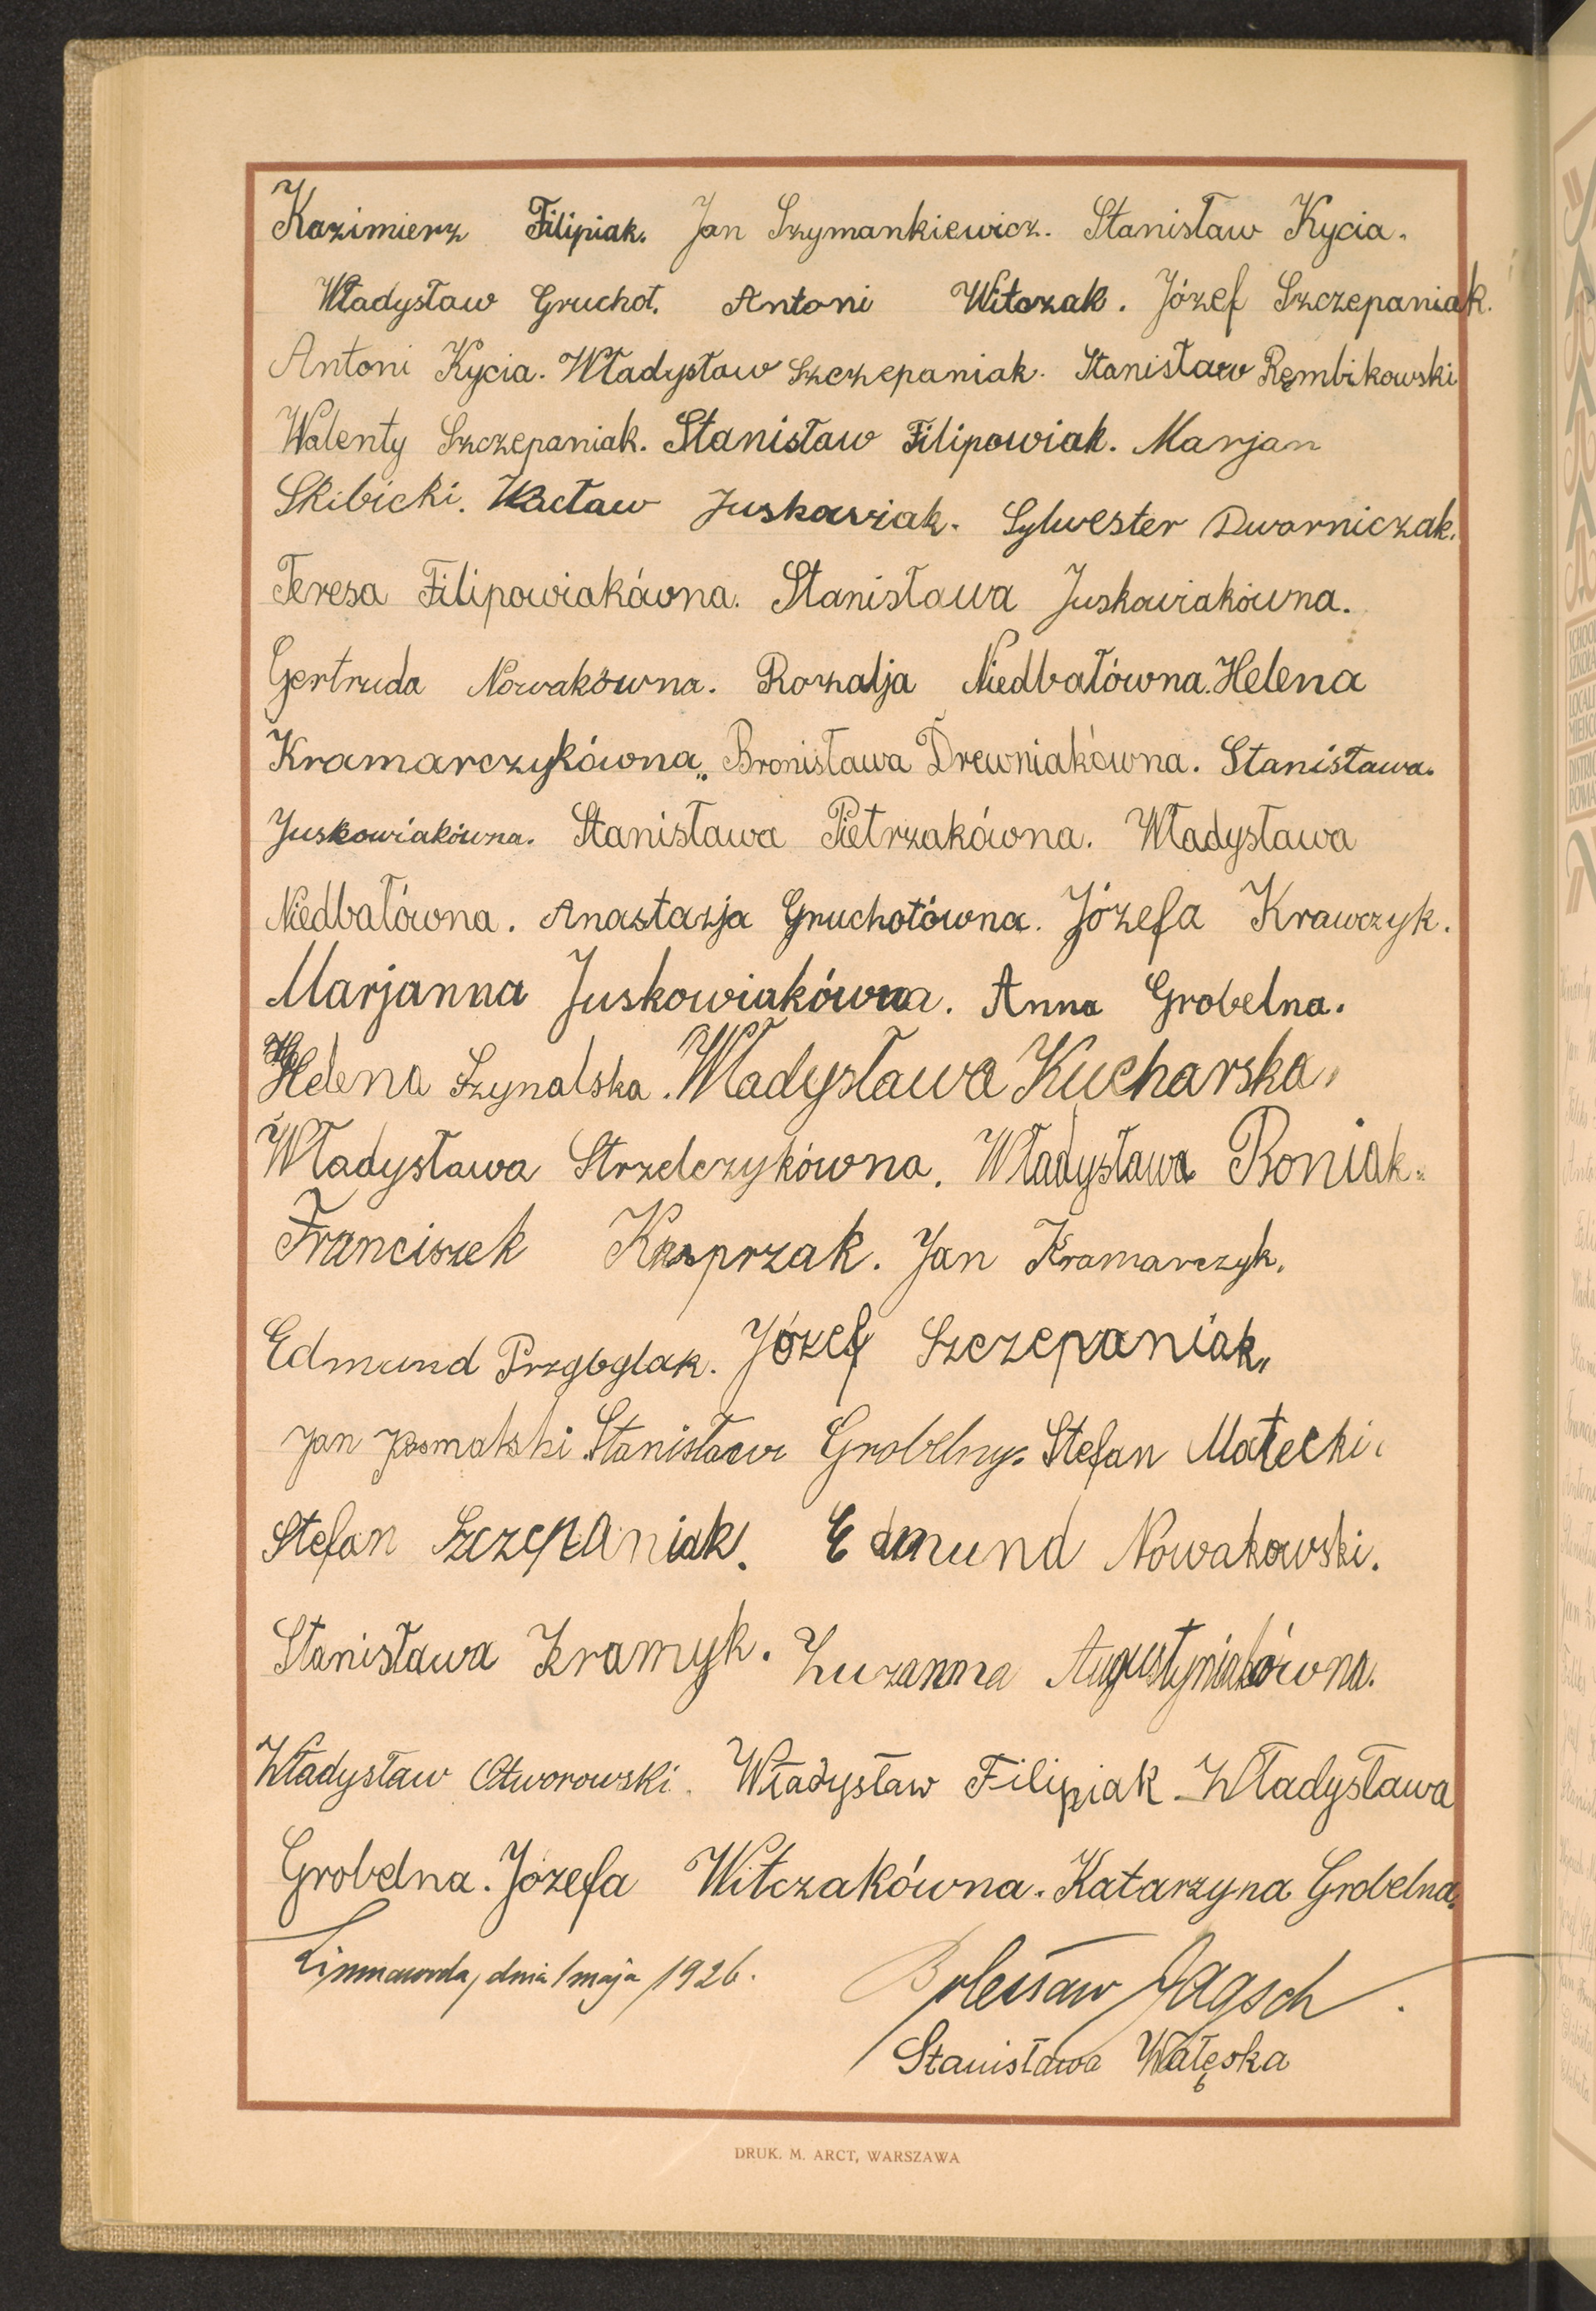 Kazimierz Filipiak. Jan Szymankiewicz. Stanisław Kycia.
Władysław Gruchot. Antoni Witczak. Józef Szczepaniak.
Antoni Kycia. Władysław Szczepaniak. Stanisław Rembikowski
Walenty Szczepaniak. Stanisław Filipowiak. Marjan
Skibicki. Wacław Juskowiak. Sylwester Dworniczak.
Teresa Filipowiakówna. Stanisława Juskowiakówna.
Gertruda Nowakówna. Rozalja Niedbałówna. Helena
Kramarczykówna. Bronisława Drewniakówna. Stanisława.
Juskowiakówna. Stanisława Pietrzakówna. Władysława
Niedbałówna. Anastazja Gruchotówna. Józefa Krawczyk.
Marjanna Juskowiakówna. Anna Grobelna.
Helena Szynalska. Władysława Kucharska.
Władysława Strzelczykówna. Władysława Roniak.
Franciszek Kasprzak. Jan Kramarczyk.
Edmund Przybylak. Józef Szczepaniak.
Jan Stanisław Grobelny. Stefan Małecki.
Stefan Szczepaniak. Edmund Nowakowski.
Stanisława Zuzanna Augustyniakówna.
Władysław Otworowski. Władysław Filipiak. Władysława
Grobelna. Józefa Witczakówna. Katarzyna Grobelna.
dnia 1 maja 1926.
Bolesław Jagsch.
Stanisława Wałęska
DRUK. M. ARCT, WARSZAWA